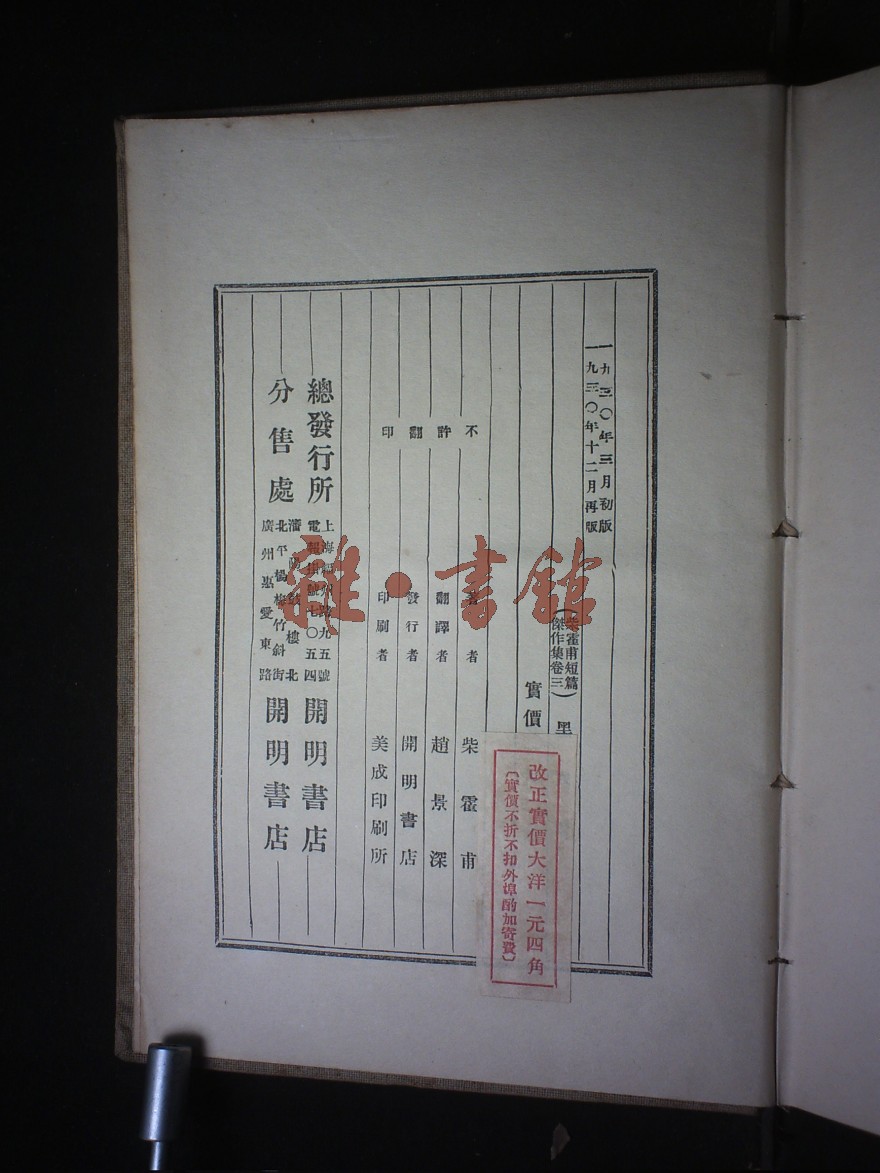 一九三〇年三月初版
一九三〇年十二月再版
(柴霍甫短篇
傑作集卷三)
黑
實價
改正實價大洋一元四角
〔實價不折不扣外埠酌加寄費〕
不許翻印
著者 柴霍甫
翻譯者 趙景深
發行者 開明書店
印刷者 美成印刷所
總發行所 上海福州路九五號 開明書店
電報掛號七〇五四
分售處 瀋陽鼓樓北 開明書店
北平楊梅竹斜街
廣州惠愛東路
雜·書館